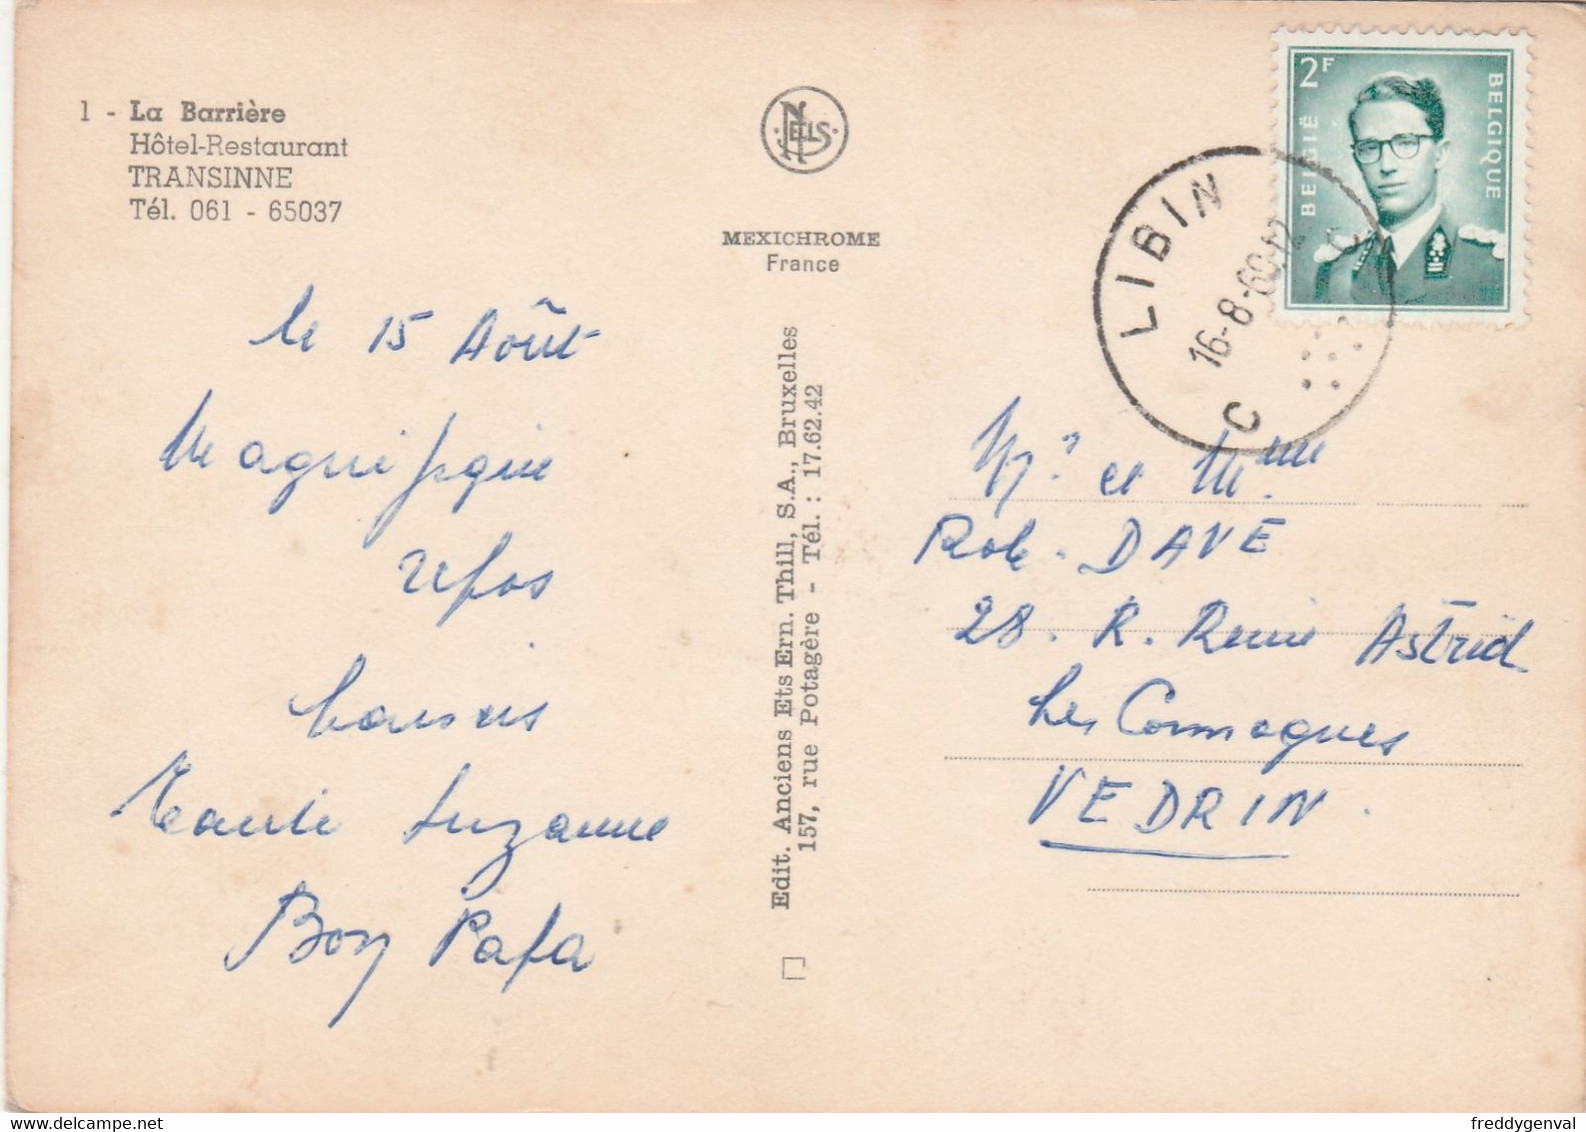 1 - La Barrière
Hôtel-Restaurant
TRANSINNE
Tél. 061 - 65037
le 15 Août
Magnifique
repos
baisers
Tante Suzanne
Bon Papa
NELS
MEXICHROME
France
Edit. Anciens Ets Ern. Thill, S.A., Bruxelles
157, rue Potagère - Tél. : 17.62.42
2F
BELGIË
BELGIQUE
LIBIN
16-8-60 12
C C
Mr et Mme
Rob. DAVE
28. R. Reine Astrid
Les Comognes
VEDRIN.
freddygenval